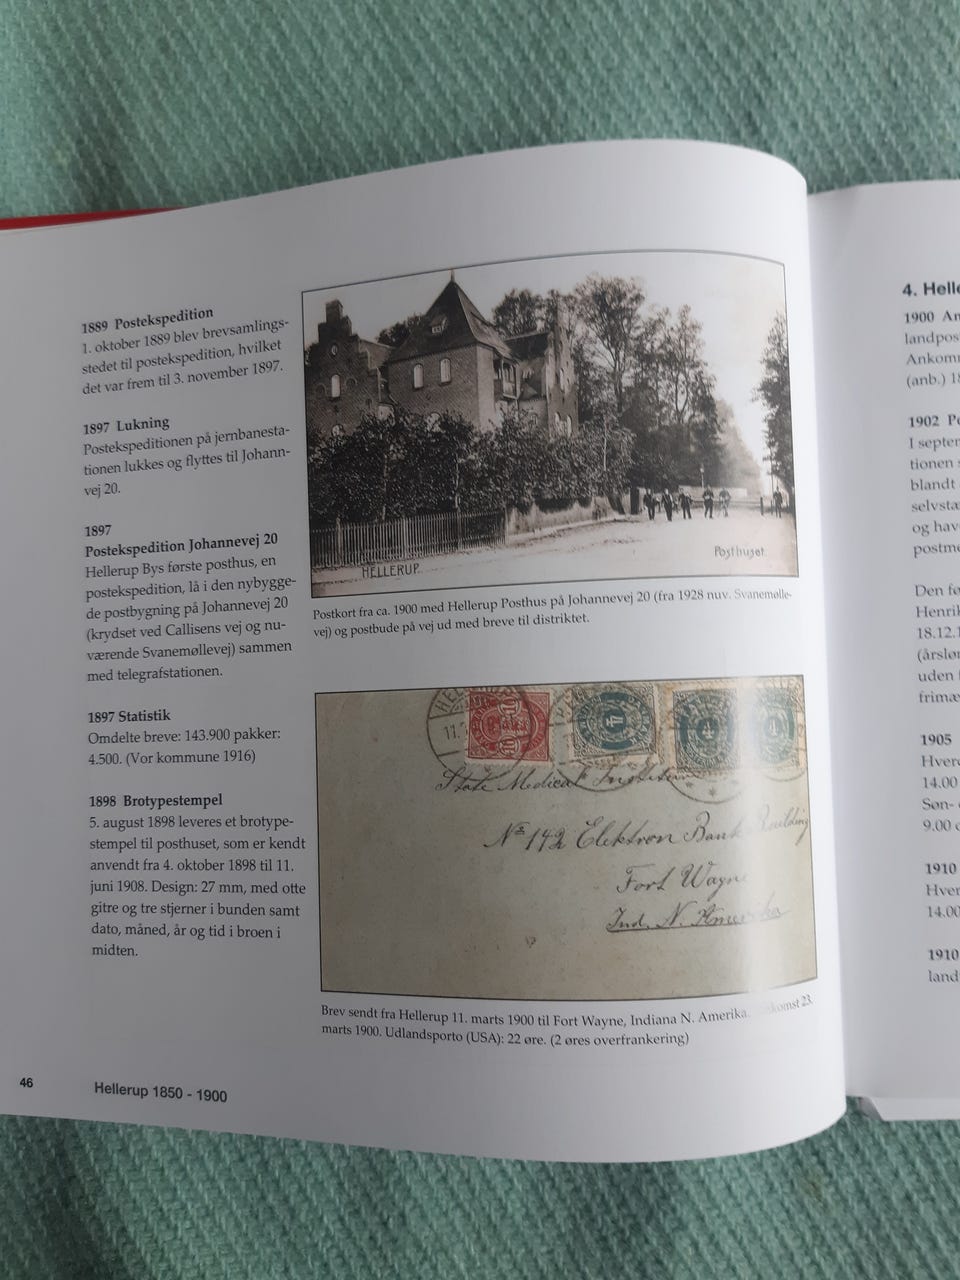 1889 Postekspedition
1. oktober 1889 blev brevsamlings-
stedet til postekspedition, hvilket
det var frem til 3. november 1897.
1897 Lukning
Postekspeditionen på jernbanesta-
tionen lukkes og flyttes til Johann-
vej 20.
1897
Postekspedition Johannevej 20
Hellerup Bys første posthus, en
postekspedition, lå i den nybygge-
de postbygning på Johannevej 20
(krydset ved Callisens vej og nu-
værende Svanemøllevej) sammen
med telegrafstationen.
1897 Statistik
Omdelte breve: 143.900 pakker:
4.500. (Vor kommune 1916)
1898 Brotypestempel
5. august 1898 leveres et brotype-
stempel til posthuset, som er kendt
anvendt fra 4. oktober 1898 til 11.
juni 1908. Design: 27 mm, med otte
gitre og tre stjerner i bunden samt
dato, måned, år og tid i broen i
midten.
HELLERUP.
Posthuset.
Postkort fra ca. 1900 med Hellerup Posthus på Johannevej 20 (fra 1928 nuv. Svanemølle-
vej) og postbude på vej ud med breve til distriktet.
10 10
4
4
State Medical Institute
No 142 Elektron Bank Building
Fort Wayne
Ind. N. Amerika
Brev sendt fra Hellerup 11. marts 1900 til Fort Wayne, Indiana N. Amerika. 23.
marts 1900. Udlandsporto (USA): 22 øre. (2 øres overfrankering)
46
Hellerup 1850 - 1900
4. Helle
1900 An
landpos
Ankom
(anb.) 18
1902 Po
I septer
tionen s
blandt
selvstæ
og hav
postme
Den fø
Henrik
18.12.1
(årsløn
uden f
frimæ
1905
Hverd
14.00
Søn-
9.00 o
1910
Hver
14.00
1910
land